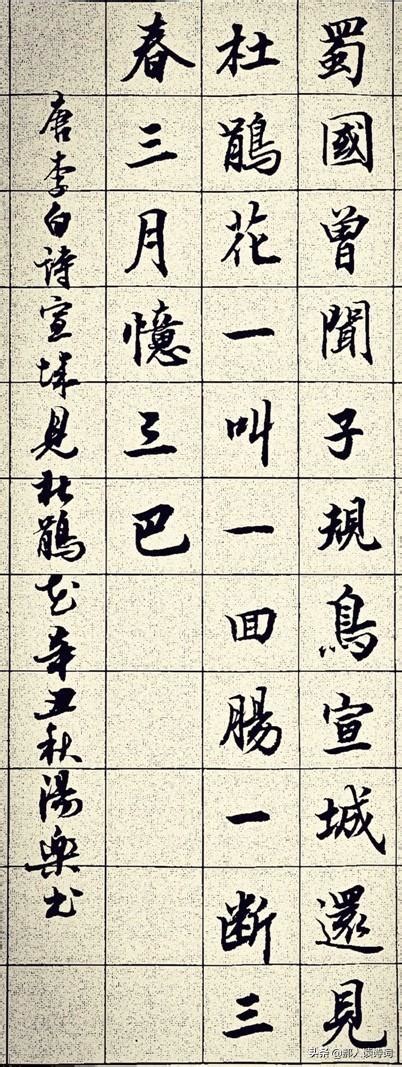 蜀國曾聞子規鳥宣城還見
杜鵑花一叫一回腸一斷三
春三月憶三巴
唐李白詩宣城見杜鵑花辛丑秋湯樂書
头条@鄙人谈诗词